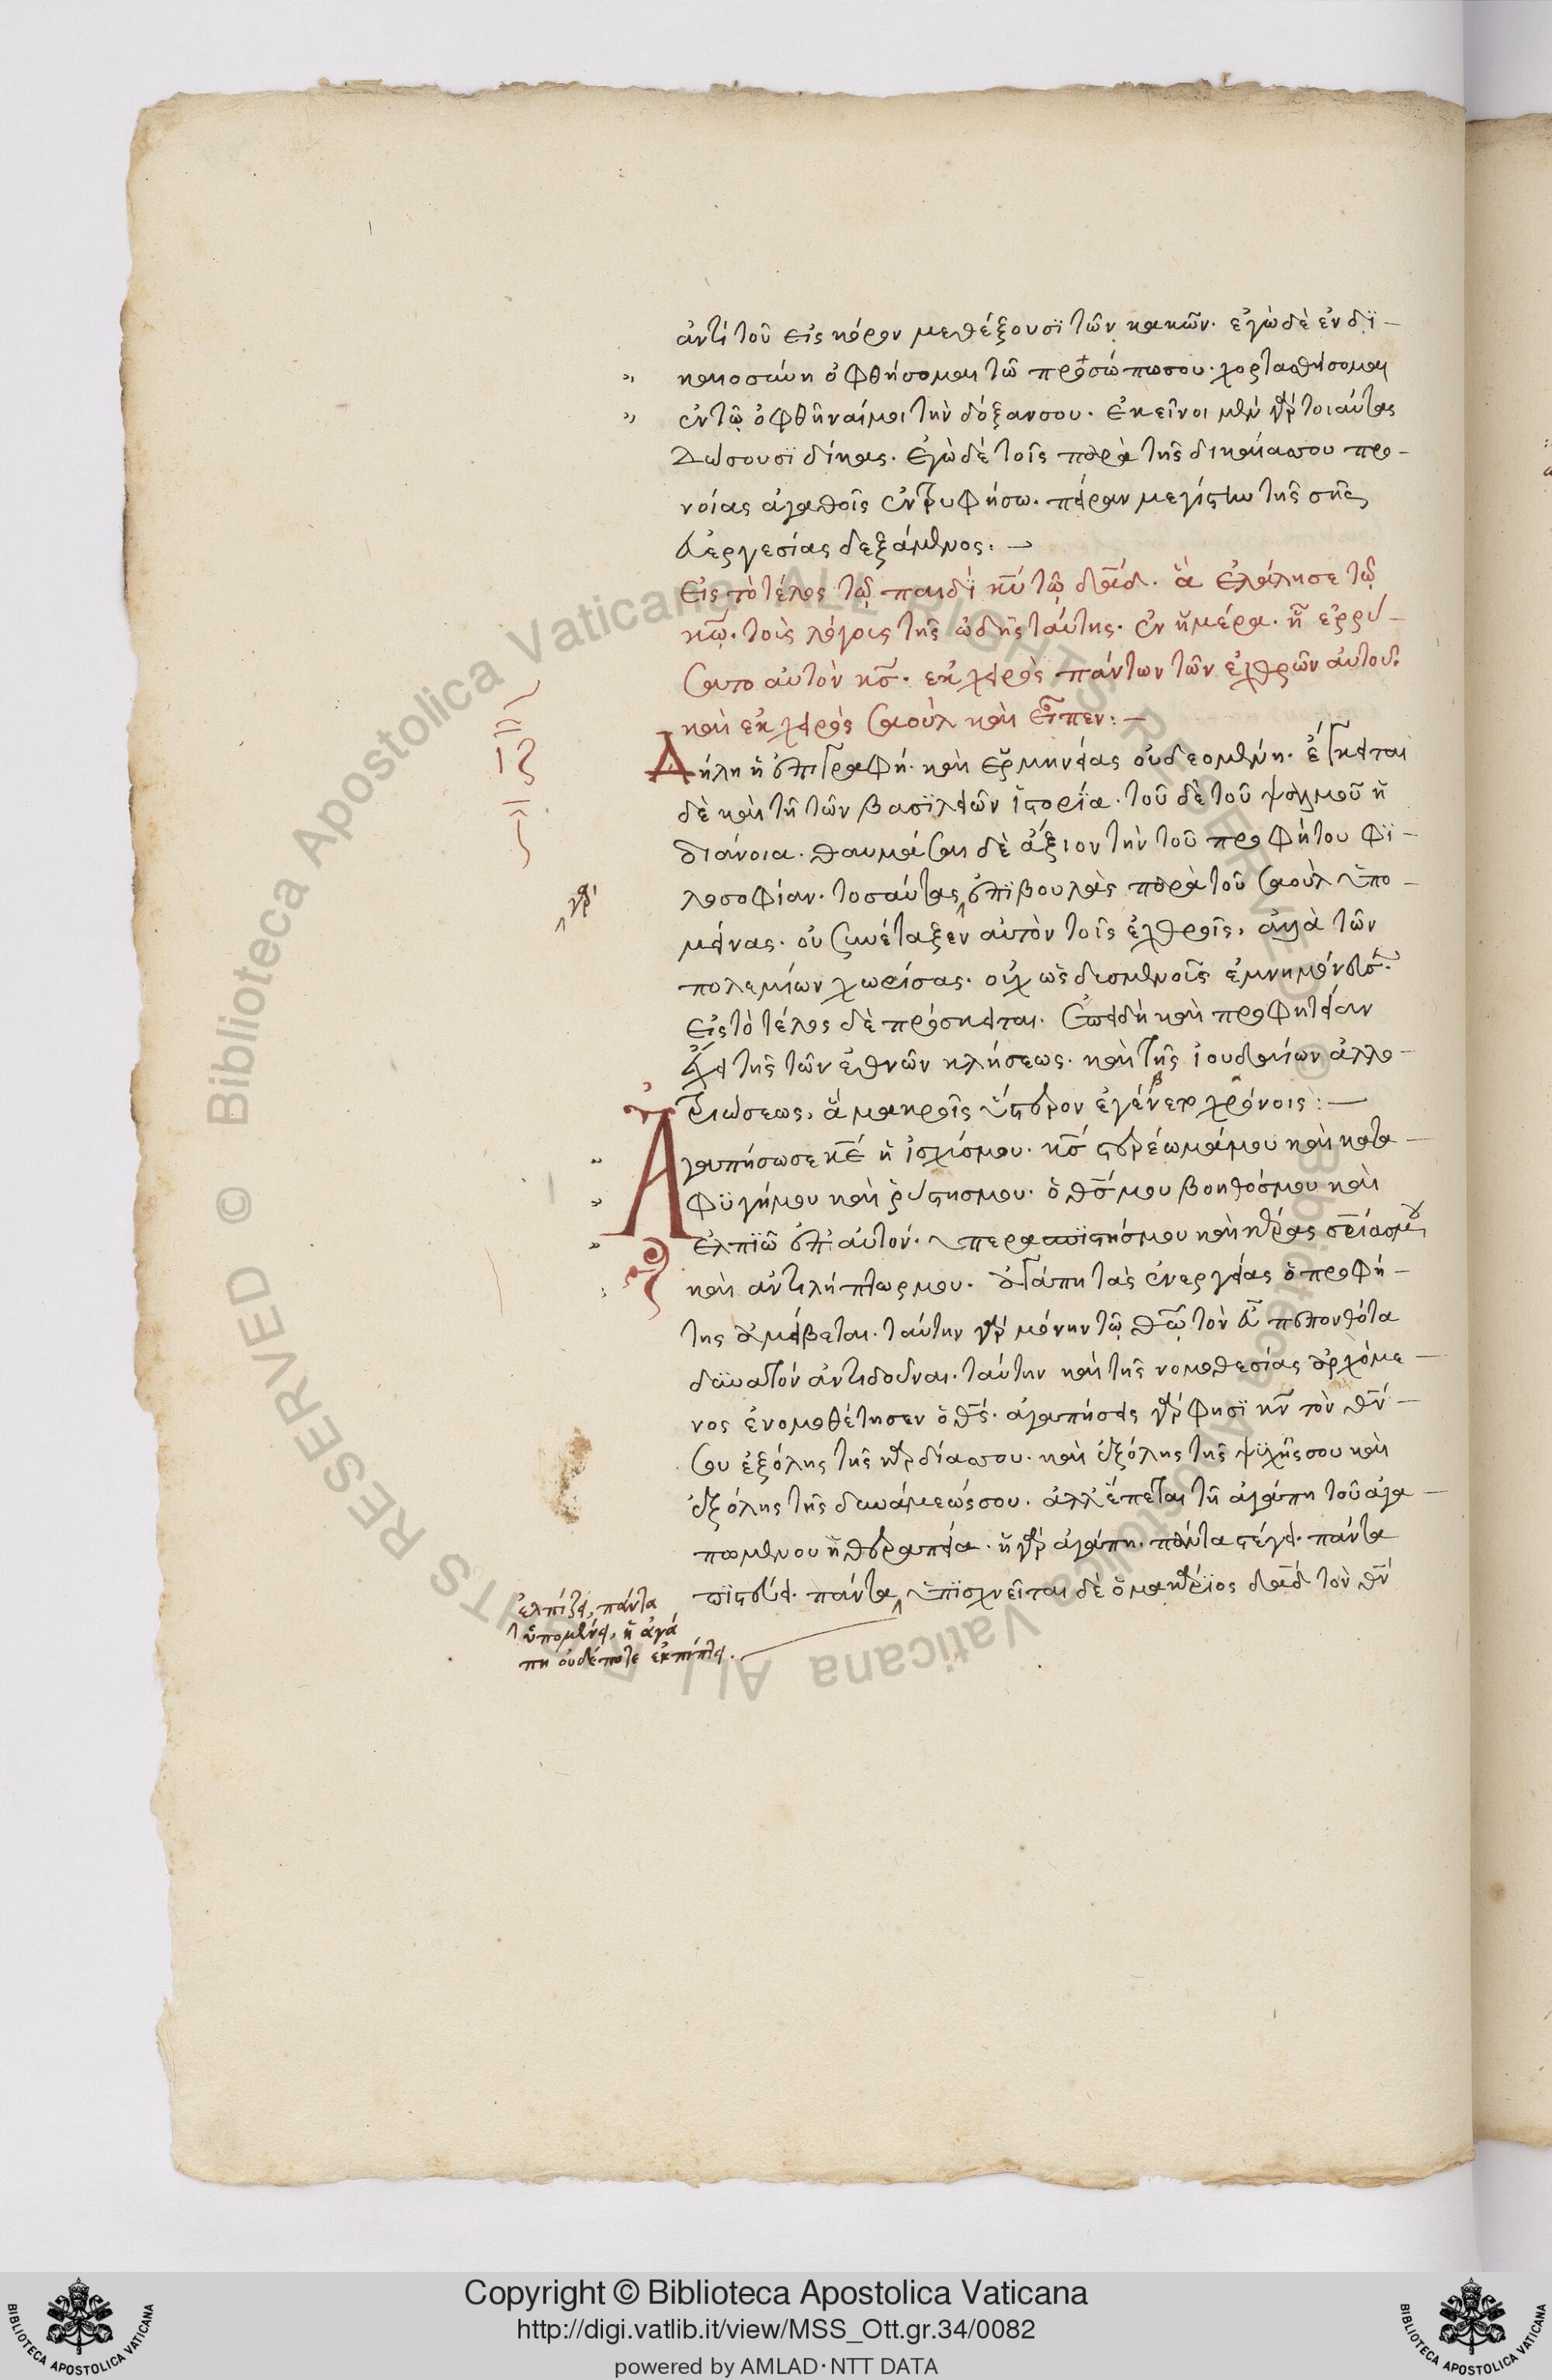 ἀντὶ τοῦ εἰς κόρον μεθέξουσϊ τῶν κακῶν. ἐγὼ δὲ ἐν δϊ-
καιοσύνη ὀφθήσομαι τῶ προσώπωσου. χορτασθήσομαι
ἐντῷ ὀφθῆναίμοι τὴν δόξανσου. ἐκεῖνοι μὲν γὰρ τοιαύτας
Δώσουσϊ δίκας. ἐγὼ δὲ τοῖς παρὰ τῆς δικαίασου προ-
νοίας ἀγαθοῖς ἐντρυφήσω. πεῖραν μεγίστην τῆς σῆς
εὐεργεσίας δεξάμενος. —
εἰς τὸ τέλος τῶ παιδὶ κῡ τῷ δᾱδ. ἃ ἐλάλησε τῷ
κω̄. τοὺς λόγους τῆς ὠδῆς ταύτης. ἐν ἡμέρα. ἧ ἐρρύ-
σατο αὐτὸν κς̄. ἐκ χειρὸς πάντων τῶν ἐχθρῶν αὐτοῦ.
καὶ ἐκ χειρὸς σαοὺλ καὶ εἶπεν: —
ιζ
Δήλη ἡ ἐπιγραφή. καὶ ἑρμηνείας οὐδεομένη. ἔγκειται
δὲ καὶ τῆ τῶν βασϊλειῶν ἱστορία. τοῦ δὲ τοῦ ψαλμοῦ ἡ
διάνοια. θαυμάσαι δὲ ἄξιον τὴν τοῦ προφήτου φϊ-
λοσοφίαν. τοσαύτας ἐπϊβουλὰς παρὰ τοῦ σαοὺλ ὑπο-
γὰρ
μείνας. οὐ συνέταξεν αὐτὸν τοῖς ἐχθροῖς, ἀλλὰ τῶν
πολεμίων χωρίσας. οὐχ ὡς δυσμενοῦς ἐμνημόνευσε.
εἰς τὸ τέλος δὲ πρόσκειται. ἐπειδὴ καὶ προφητείαν
ἔχει τῆς τῶν ἐθνῶν κλήσεως. καὶ τῆς ἰουδαίων ἀλλο-
τριώσεως, ἃ μακροῖς ὕστερον ἐγένετο χρόνοις: —
Ἀγαπήσωσε κε̄ ἡ ἰσχύσμου. κς̄ στερέωμάμου καὶ κατα-
φϋγήμου καὶ ῥύστησμου. ὁ θς̄ μου βοηθόσμου καὶ
ἐλπϊῶ ἐπ' αὐτόν. ὑπερασπϊστήσμου καὶ κέρας σρ̄ίασμου
καὶ ἀντιλήπτωρμου. ἀγάπη τὰς ἐνεργείας ὁ προφή-
της ἀμείβεται. ταύτην γὰρ μόνην τῷ θω̄ τὸν εὖ πεπονθότα
δυνατὸν ἀντιδοῦναι. ταύτην καὶ τῆς νομοθεσίας ἀρχόμε-
νος ἐνομοθέτησεν ὁ θς̄. ἀγαπήσεις γὰρ φησϊ κν̄ τὸν θν̄
σου ἐξόλης τῆς καρδίασου. καὶ ἐξόλης τῆς ψϋχῆςσου καὶ
ἐξόλης τῆς δυνάμεώςσου. ἀλλ' ἕπεται τῆ ἀγάπη τοῦ ἀγα-
πωμένου ἡ θεραπεία. ἡ γὰρ ἀγάπη. πάντα στέγει. πάντα
πϊστεύει. πάντα ὑπϊσχνεῖται δὲ ὁ μακάρϊος δᾱδ τὸν θν̄
ἐλπίζει, πάντα
ὑπομένει, ἡ ἀγά
πη οὐδέποτε ἐκπίπτει.
Copyright © Biblioteca Apostolica Vaticana
http://digi.vatlib.it/view/MSS_Ott.gr.34/0082
powered by AMLAD·NTT DATA
BIBLIOTECA APOSTOLICA VATICANA
BIBLIOTECA APOSTOLICA VATICANA
© Biblioteca Apostolica Vaticana ALL RIGHTS RESERVED © Biblioteca Apostolica Vaticana ALL RIGHTS RESERVED